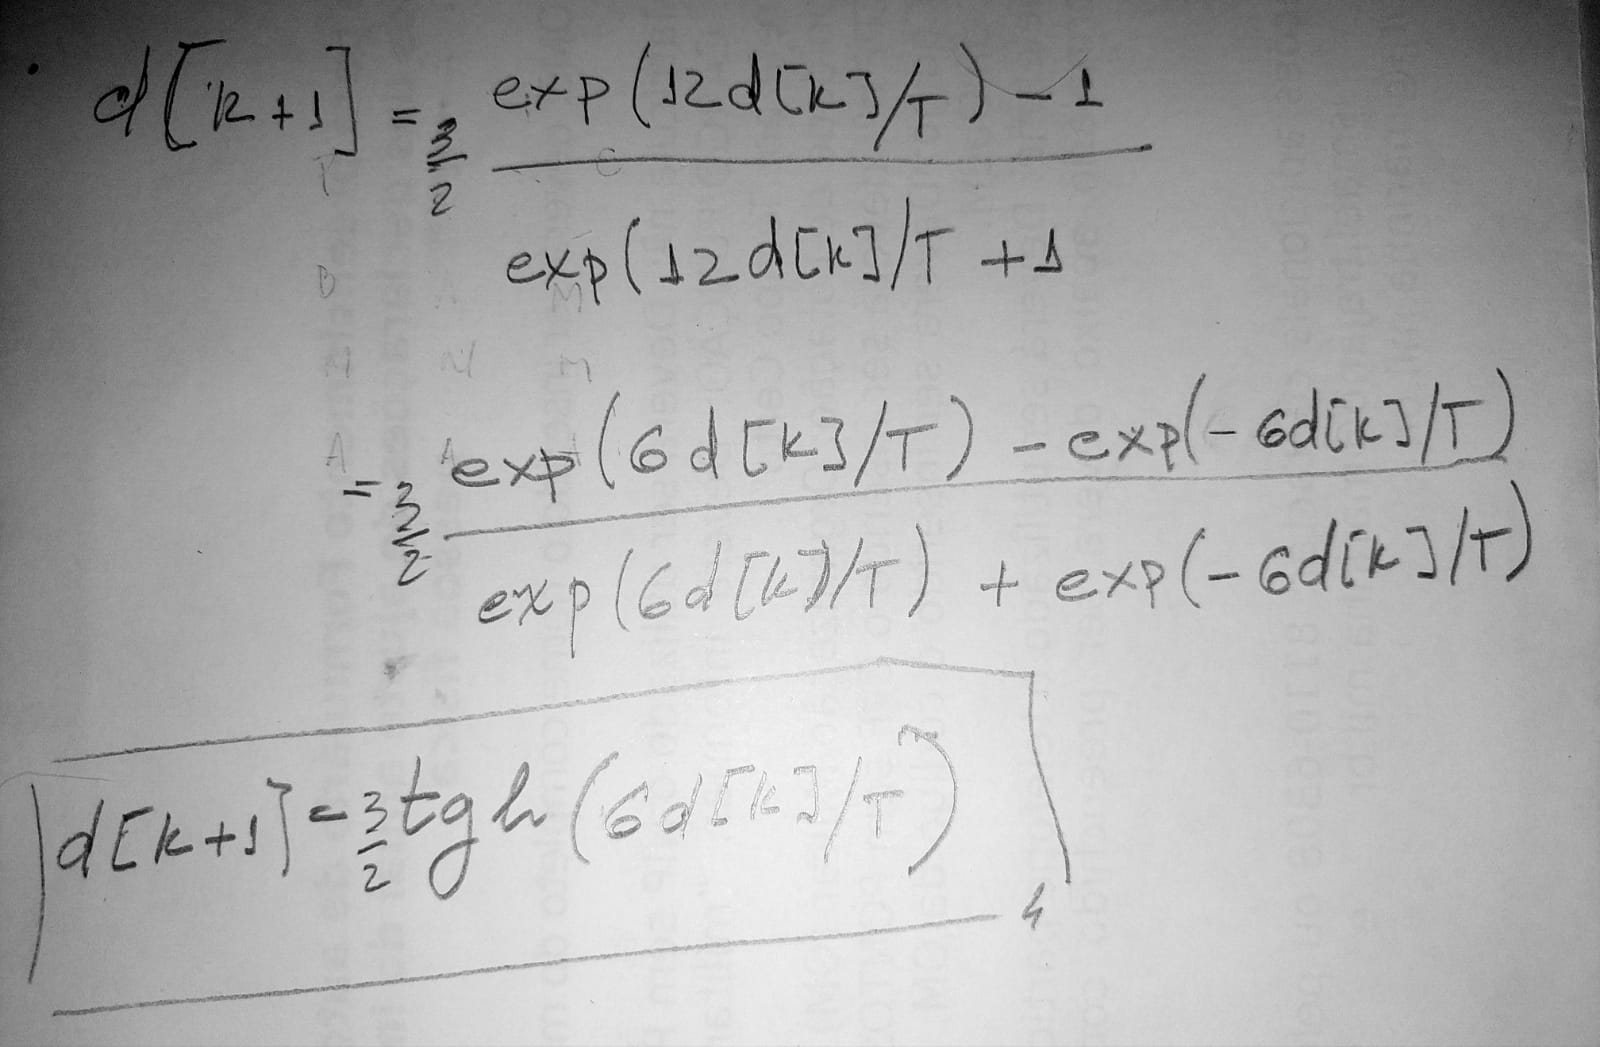 d[k+1] = 3/2 (exp(12d[k]/T) - 1) / (exp(12d[k]/T + 1)
= 3/2 (exp(6d[k]/T) - exp(-6d[k]/T)) / (exp(6d[k]/T) + exp(-6d[k]/T))
d[k+1] = 3/2 tgh(6d[k]/T)